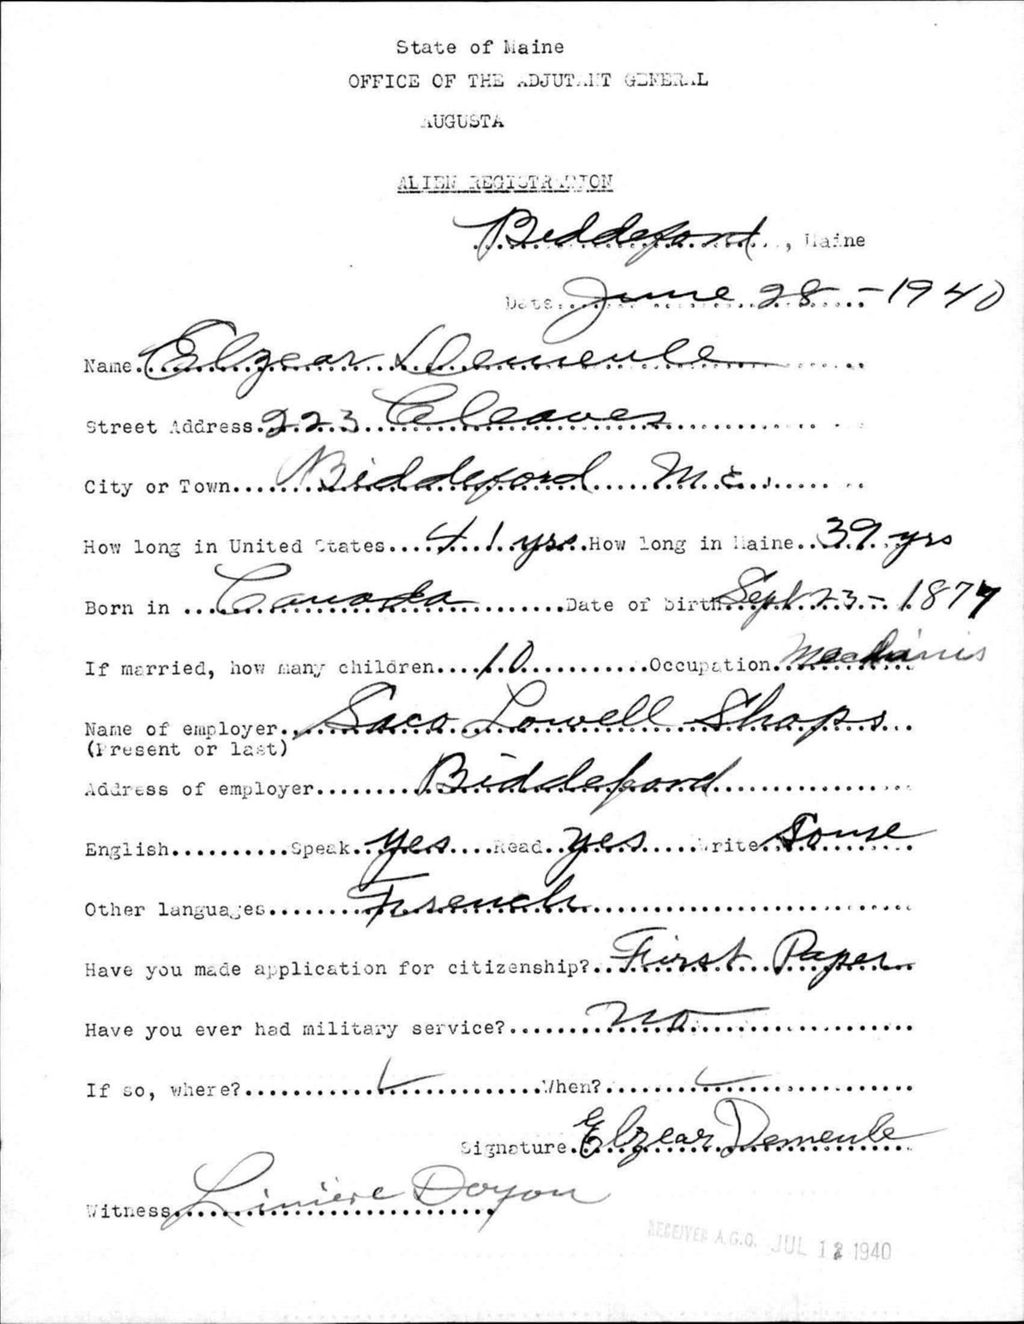 State of Maine
OFFICE OF THE ADJUTANT GENERAL
AUGUSTA
ALIEN REGISTRATION
Biddeford, Maine
Date June 28 - 1940
Name Elzear Demeule
Street Address 223 Cleaves
City or Town Biddeford Me.
How long in United States 41 yrs How long in Maine 39 yrs
Born in Canada Date of birth Sept 23 - 1877
If married, how many children 10 Occupation Machinis
Name of employer Saco Lowell Shops
(Present or last)
Address of employer Biddeford
English Speak yes Read yes Write Some
Other languages French
Have you made application for citizenship? First Paper
Have you ever had military service? no
If so, where? When?
Signature Elzear Demeule
Witness Liniere Doyon
RECEIVED A.G.O. JUL 12 1940